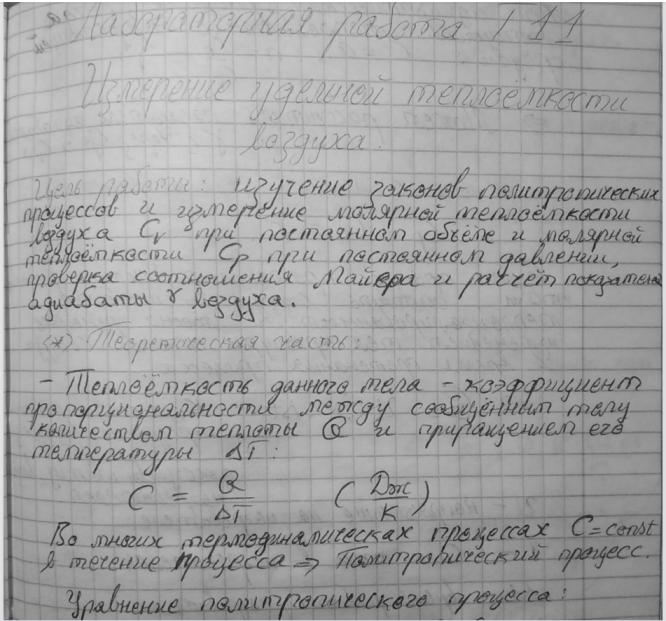 Лабораторная работа 111
Измерение удельной теплоёмкости
воздуха.
Цель работы: изучение законов политропических
процессов и измерение молярной теплоёмкости
воздуха Cv при постоянном объёме и молярной
теплоёмкости Cp при постоянном давлении,
проверка соотношения Майера и расчёт показателя
адиабаты γ воздуха.
(*). Теоретическая часть:
- Теплоёмкость данного тела - коэффициент
пропорциональности между сообщённым телу
количеством теплоты Q и приращением его
температуры ΔT:
C = Q/ΔT (Дж/К)
Во многих термодинамических процессах C=const
в течение процесса ⇒ Политропический процесс.
Уравнение политропического процесса: